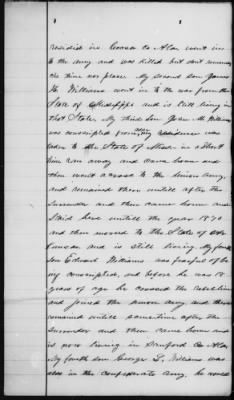 resided in Coosa Co Ala went in
to the army and was killed but dont remember
the time nor place My second son James
H. Williams went in to the war from the
State of Mississippi and is still living in
that State. My third son John M Williams
was conscripted from my residence was
taken to the State of in a short
time ran away and came home and
then went across to the Union army,
and remained there untill after the
Surrender and then came home and
Staid here untill the year 1870
and then moved to the State of Ar
kansas and is still living My fourth
Son Edward Williams was fearful of be
ing conscripted, and before he was 18
years of age he crossed the
and joined the union army and there
remained untill sometime after the
Surrender and then came home and
is now living in Co Ala
My fourth son George L. Williams was
also in the confederate army, he